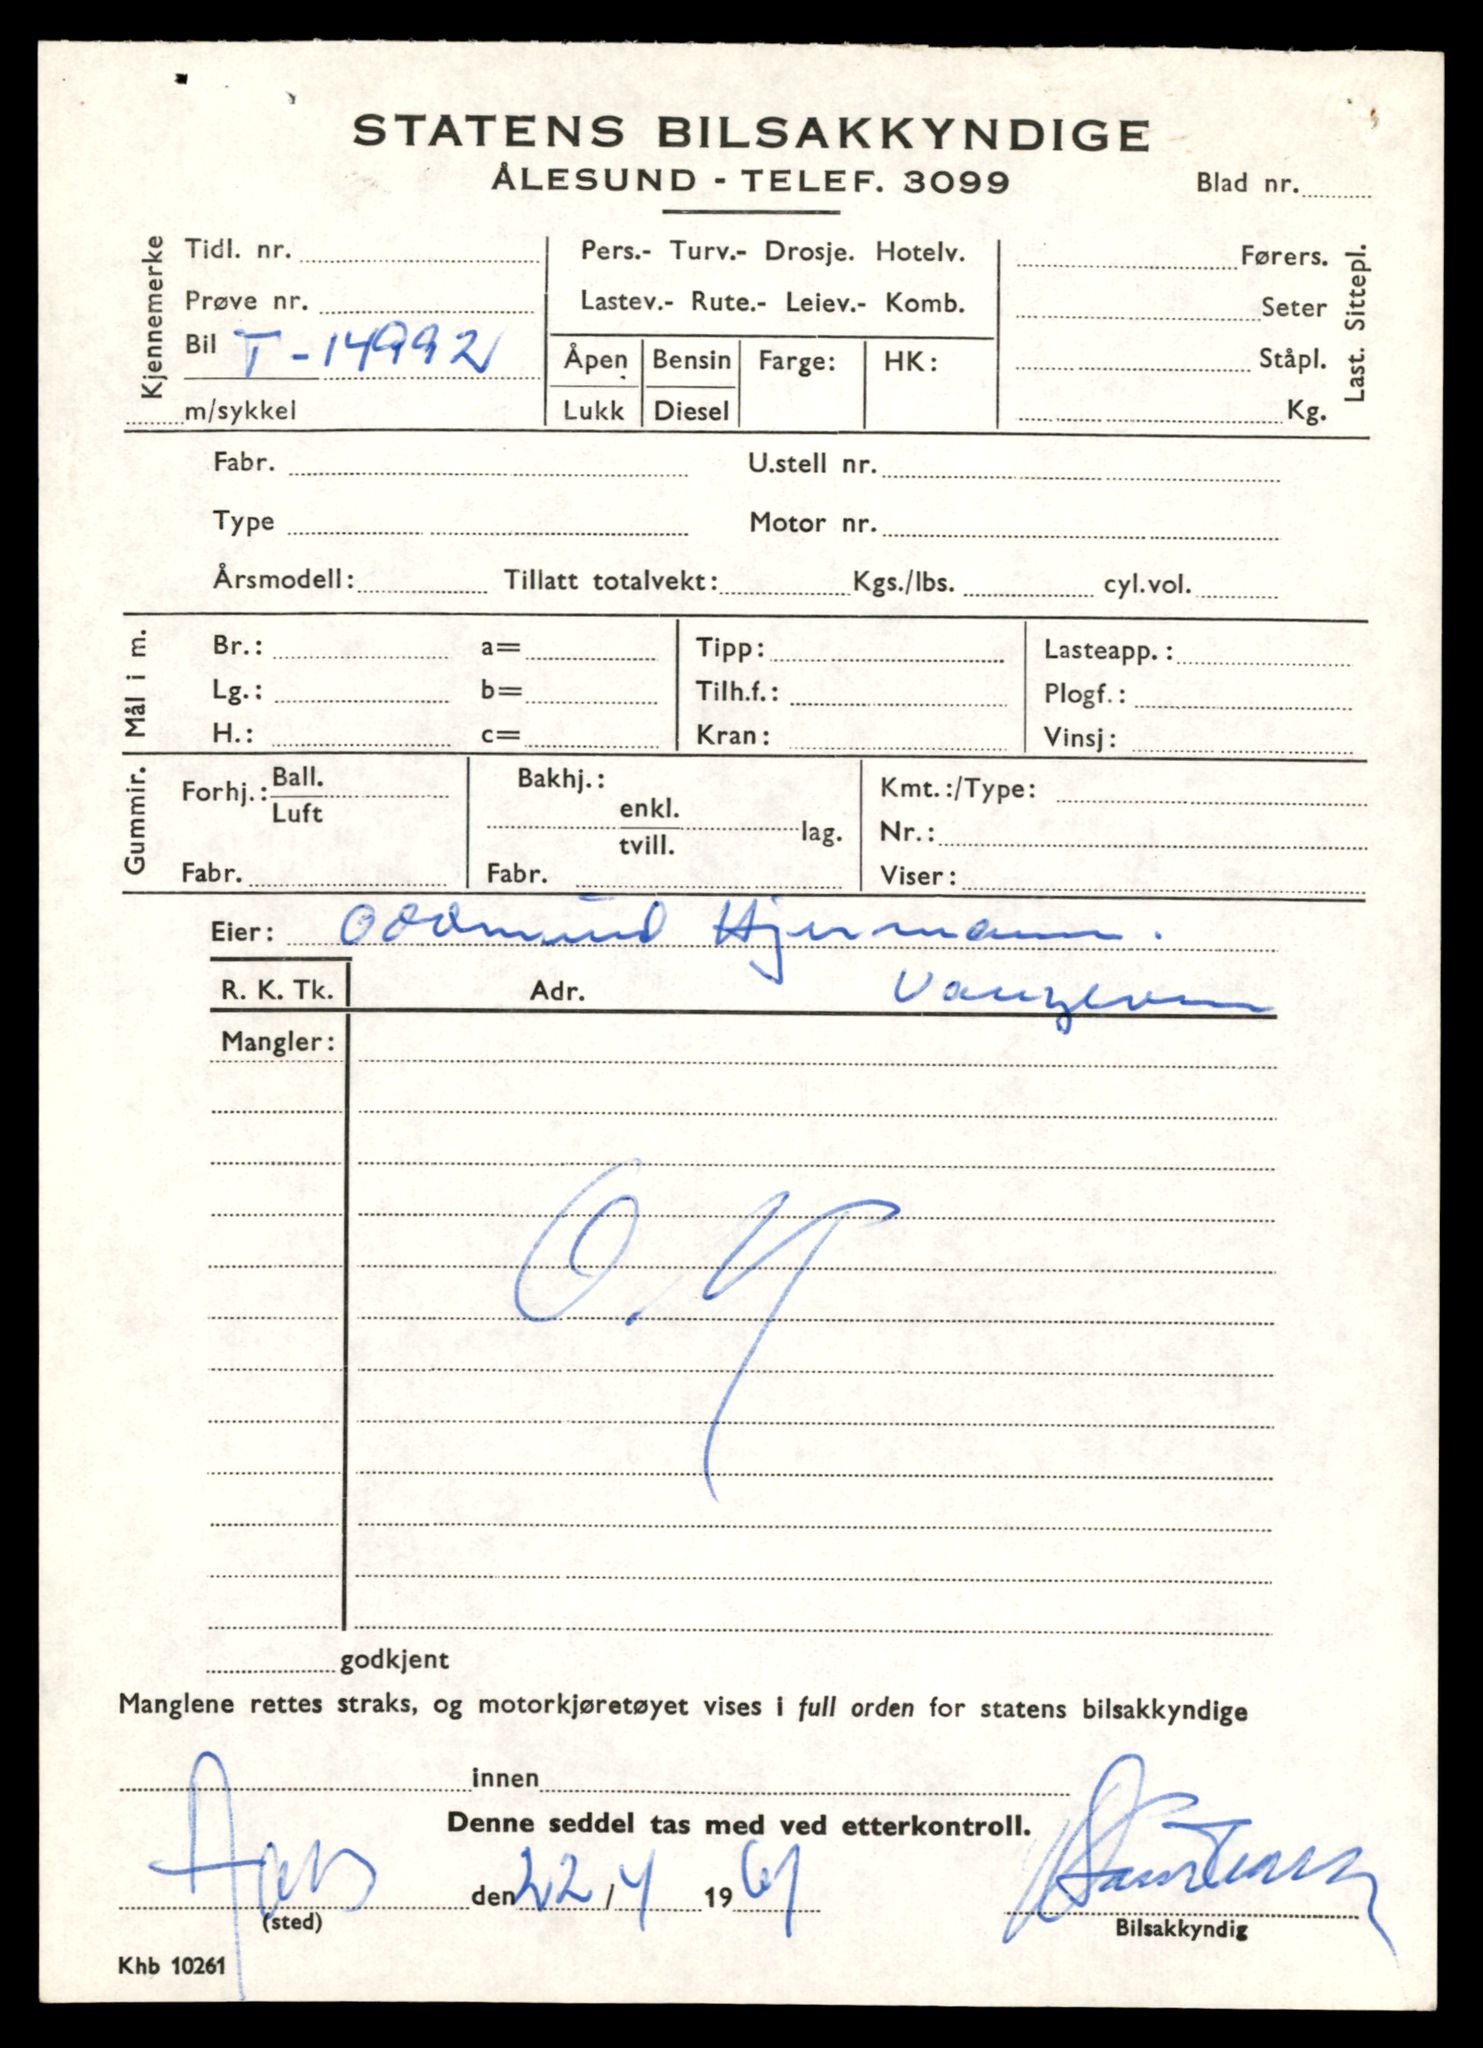 STATENS BILSAKKYNDIGE
ÅLESUND - TELEF. 3099
Blad nr.
Kjennemerke
Tidl. nr.
Prøve nr.
Bil T-14992
m/sykkel
Pers.- Turv.- Drosje. Hotelv.
Lastev.- Rute.- Leiev.- Komb.
Åpen Bensin Farge: HK:
Lukk Diesel
Førers.
Seter
Ståpl.
Kg.
Last. Sittepl.
Fabr. U.stell nr.
Type Motor nr.
Årsmodell: Tillatt totalvekt: Kgs./lbs. cyl.vol.
Mål i m.
Br.: a= Tipp: Lasteapp.:
Lg.: b= Tilh.f.: Plogf.:
H.: c= Kran: Vinsj:
Gummir.
Forhj.: Ball.
Luft
Fabr.
Bakhj.:
enkl.
tvill. lag.
Fabr.
Kmt.:/Type:
Nr.:
Viser:
Eier: Oddmund Hjermann.
R. K. Tk. Adr.
Mangler:
godkjent
Manglene rettes straks, og motorkjøretøyet vises i full orden for statens bilsakkyndige
innen
Denne seddel tas med ved etterkontroll.
den 22/4 1967
(sted)
Bilsakkyndig
Khb 10261